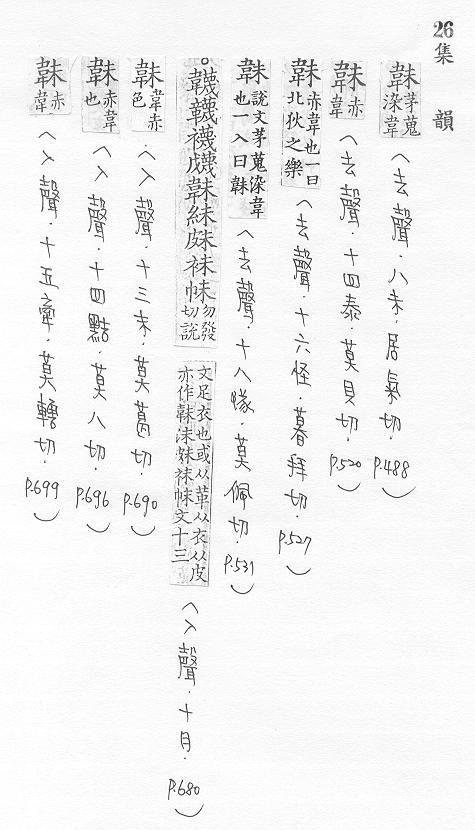 26 集 韻
韎茅蒐染韋（去聲．八未．居氣切．P.488）
韎赤韋（去聲．十四泰．莫貝切．P.520）
韎赤韋也一曰北狄之樂（去聲．十六怪．暮拜切．P.527）
韎說文茅蒐染韋也一入曰韎（去聲．十八隊．莫佩切．P.531）
韤韈襪韎䋍袜帓勿發切說文足衣也或从革从衣从皮亦作韎袜帓文十三（入聲．十月．P.680）
韎韋赤色（入聲．十三末．莫葛切．P.690）
韎赤韋也（入聲．十四黠．莫八切．P.696）
韎赤韋（入聲．十五舝．莫轄切．P.699）